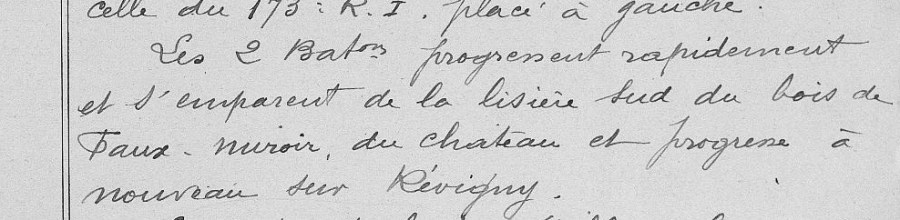 celle du 173e R.I. placé à gauche.
Les 2 Batons progressent rapidement
et s'emparent de la lisière sud du bois de
Faux-miroir, du chateau et progresse à
nouveau sur Révigny.